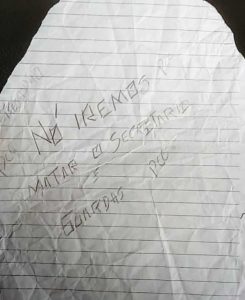 NÓ IREMOS
MATAR O SECRETARIO
E
GUARDAS PCC